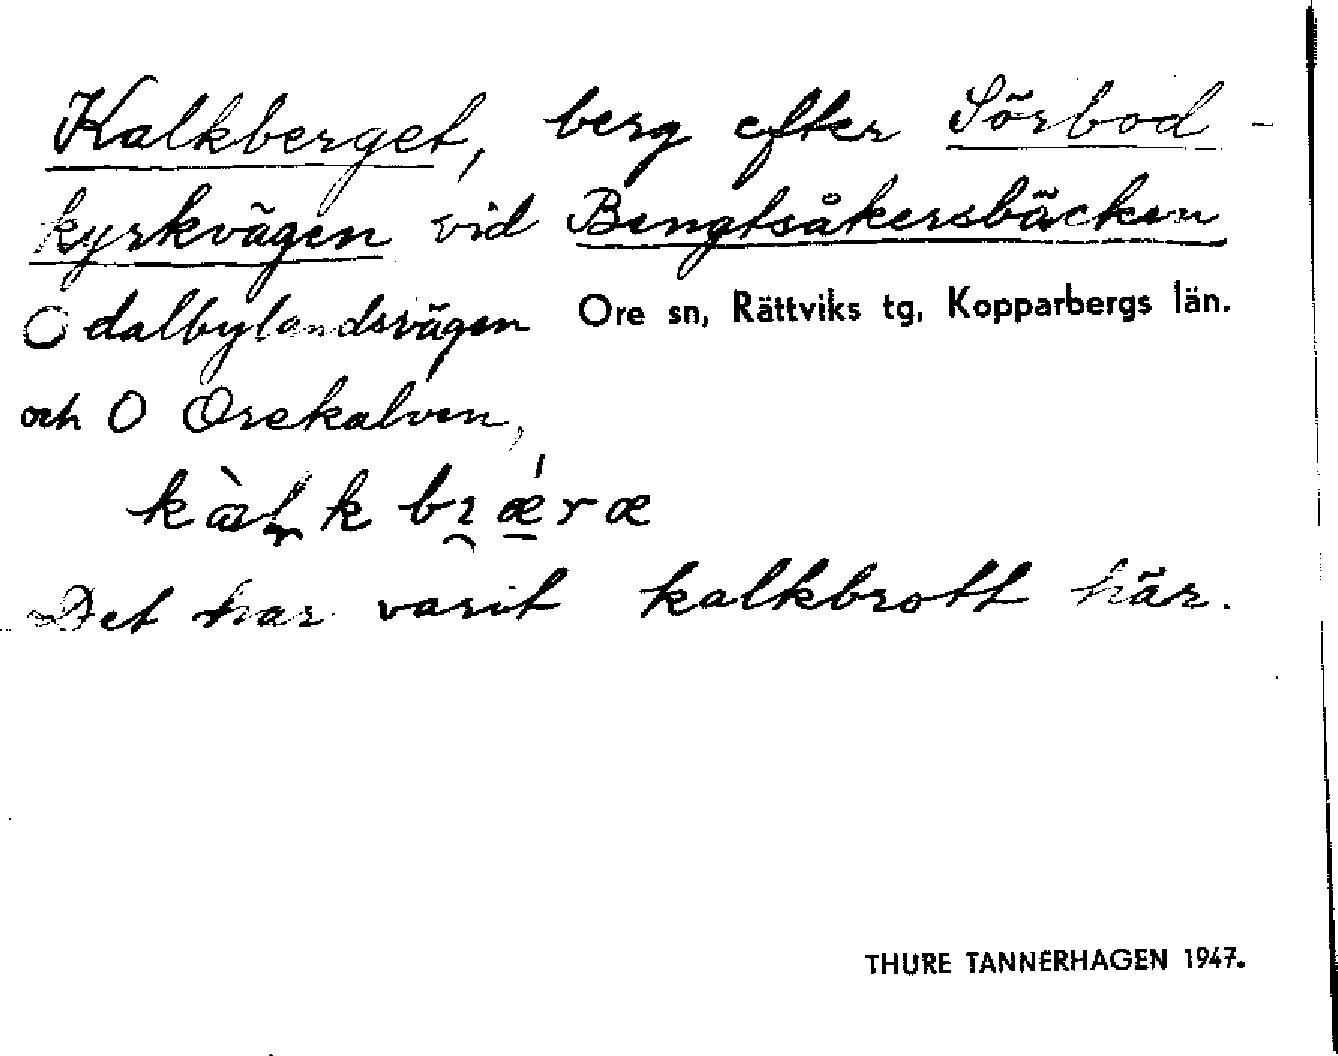 Kalkberget, berg efter Sörbod-
kyrkvägen vid Bengtsåkersbäcken
O dalbylandsvägen
Ore sn, Rättviks tg, Kopparbergs län.
och O Orekalven,
Det har varit kalkbrott här.
THURE TANNERHAGEN 1947.